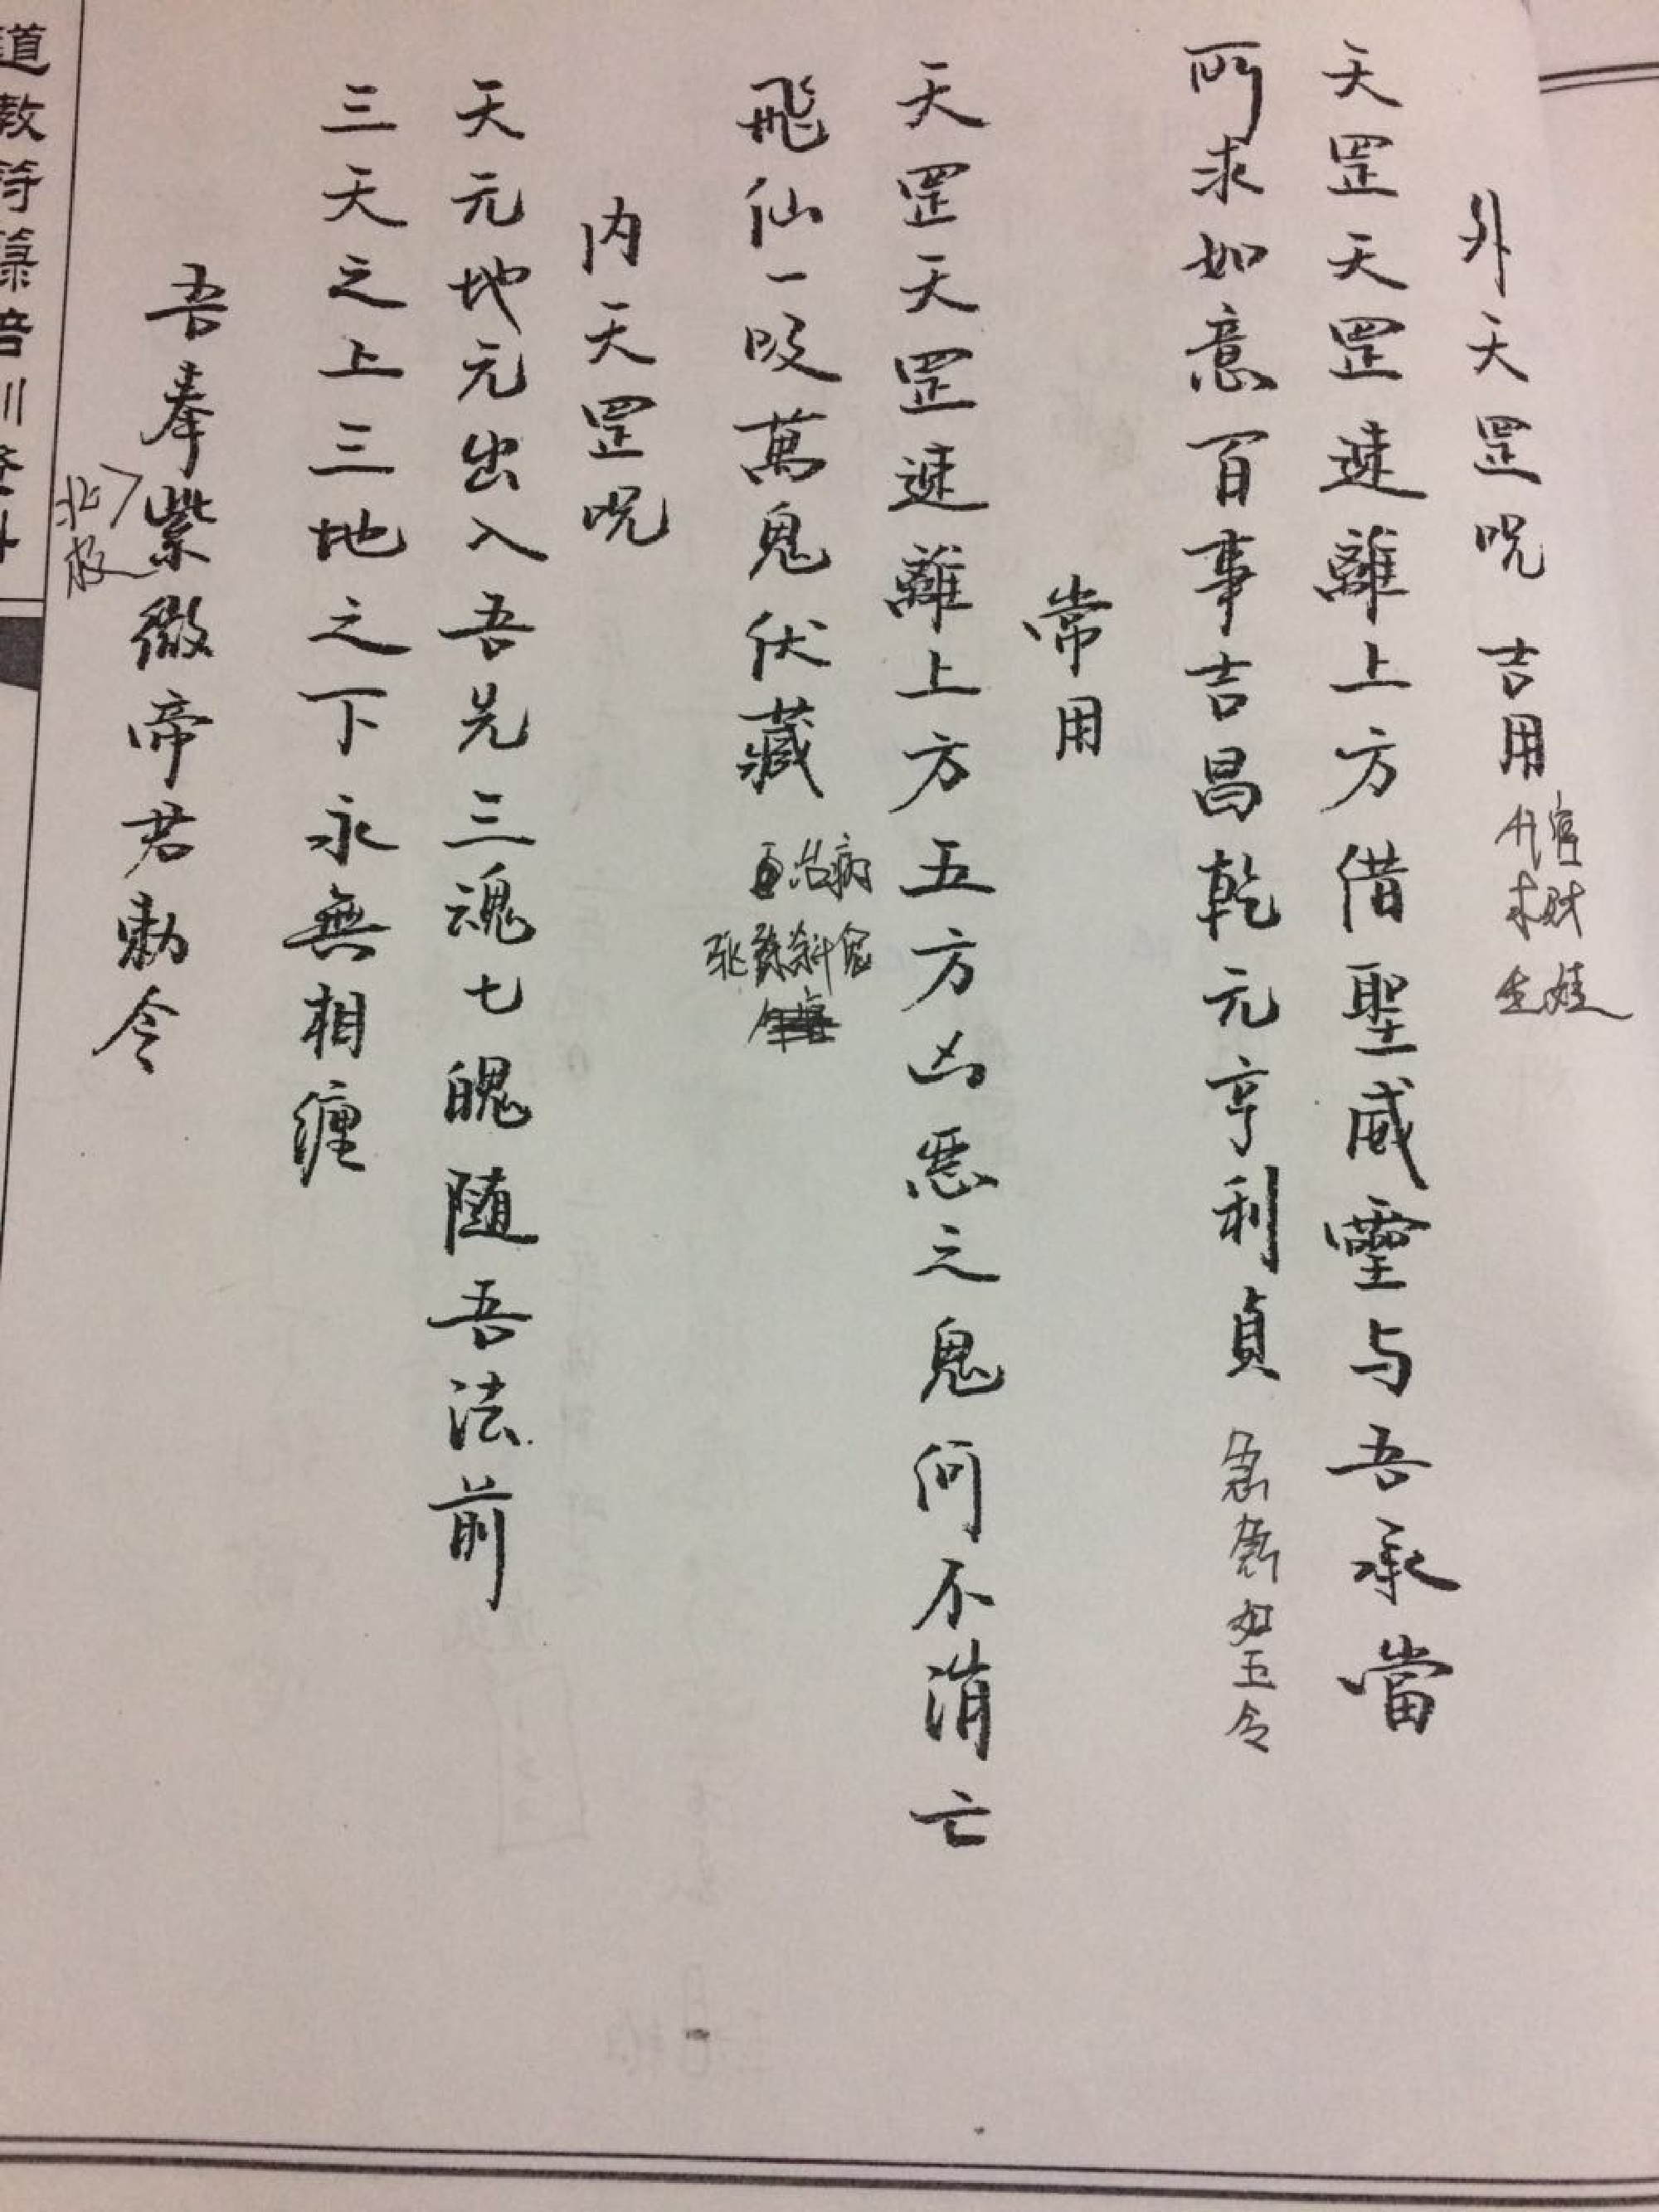 外天罡咒 吉用
求财
生娃
天罡天罡速離上方借聖威靈与吾承當
所求如意百事吉昌乾元亨利貞 急急如玉令
常用
天罡天罡速離上方五方凶惡之鬼何不消亡
飛仙一吸萬鬼伏藏
治病
内天罡咒
天元地元出入吾先三魂七魄随吾法前
三天之上三地之下永無相纏
吾奉紫微帝君勅令
北极
道教符籙培訓